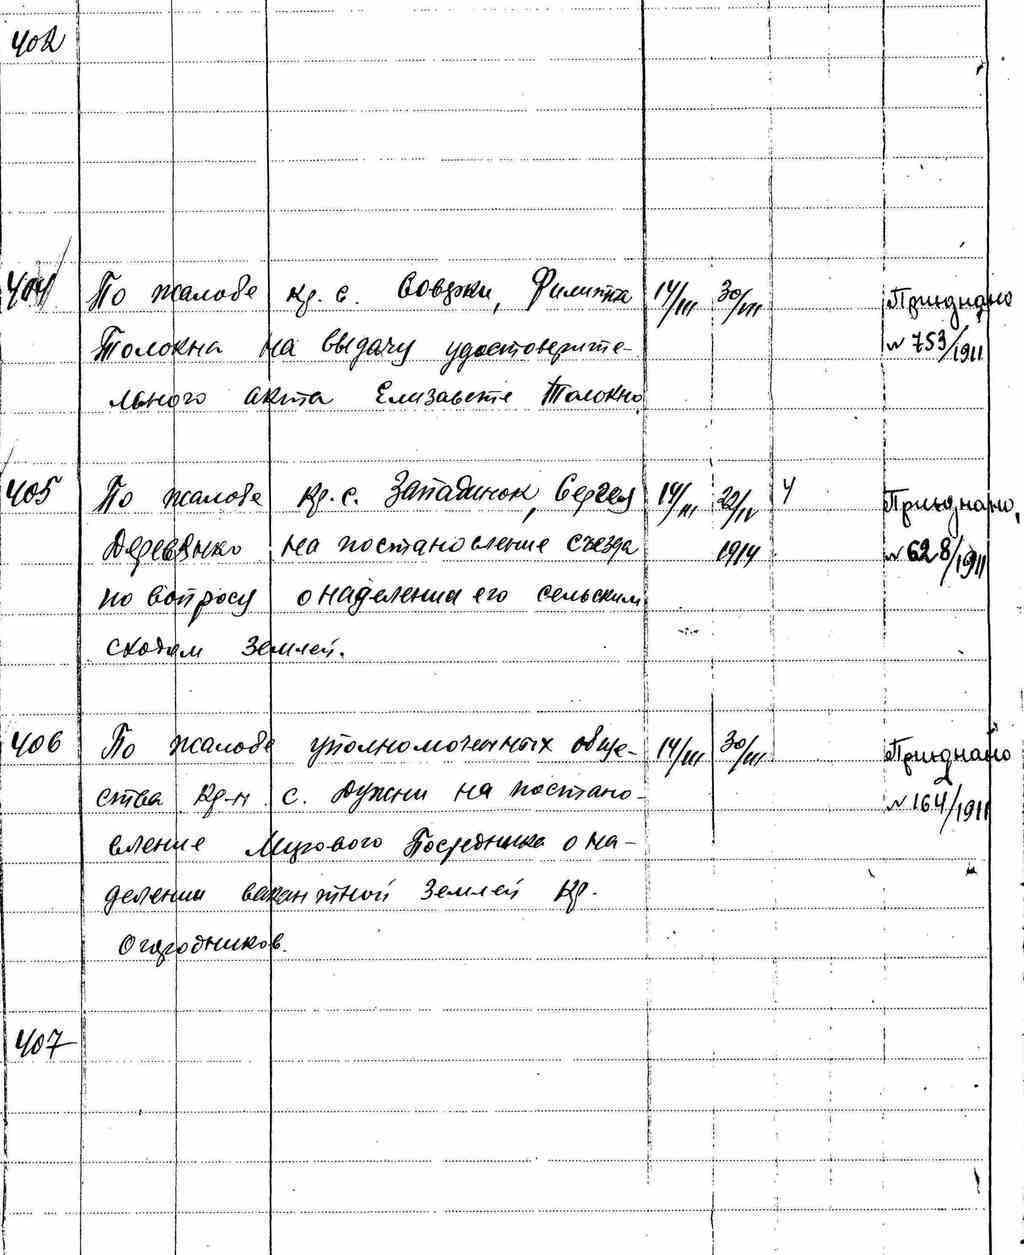 402
404 По жалобе кр. с. Совжи, Филиппа 14/III 30/III Приєднано
Толокна на выдачу удостоверите- № 753/1911
льного акта Елизавете Толокно
405 По жалобе кр. с. Западинок, Сергея 14/III 22/IV 4 Приєднано,
Деревянко на постановление съезда 1914 № 628/1911
по вопросу о наделении его сельским
сходом землей.
406 По жалобе уполномоченных обще- 14/III 30/III Приєднано
ства кр-н с. Дужни на постано- № 164/1911
вление Мирового Посредника о на-
делении вакантной землей кр.
Огородников.
407